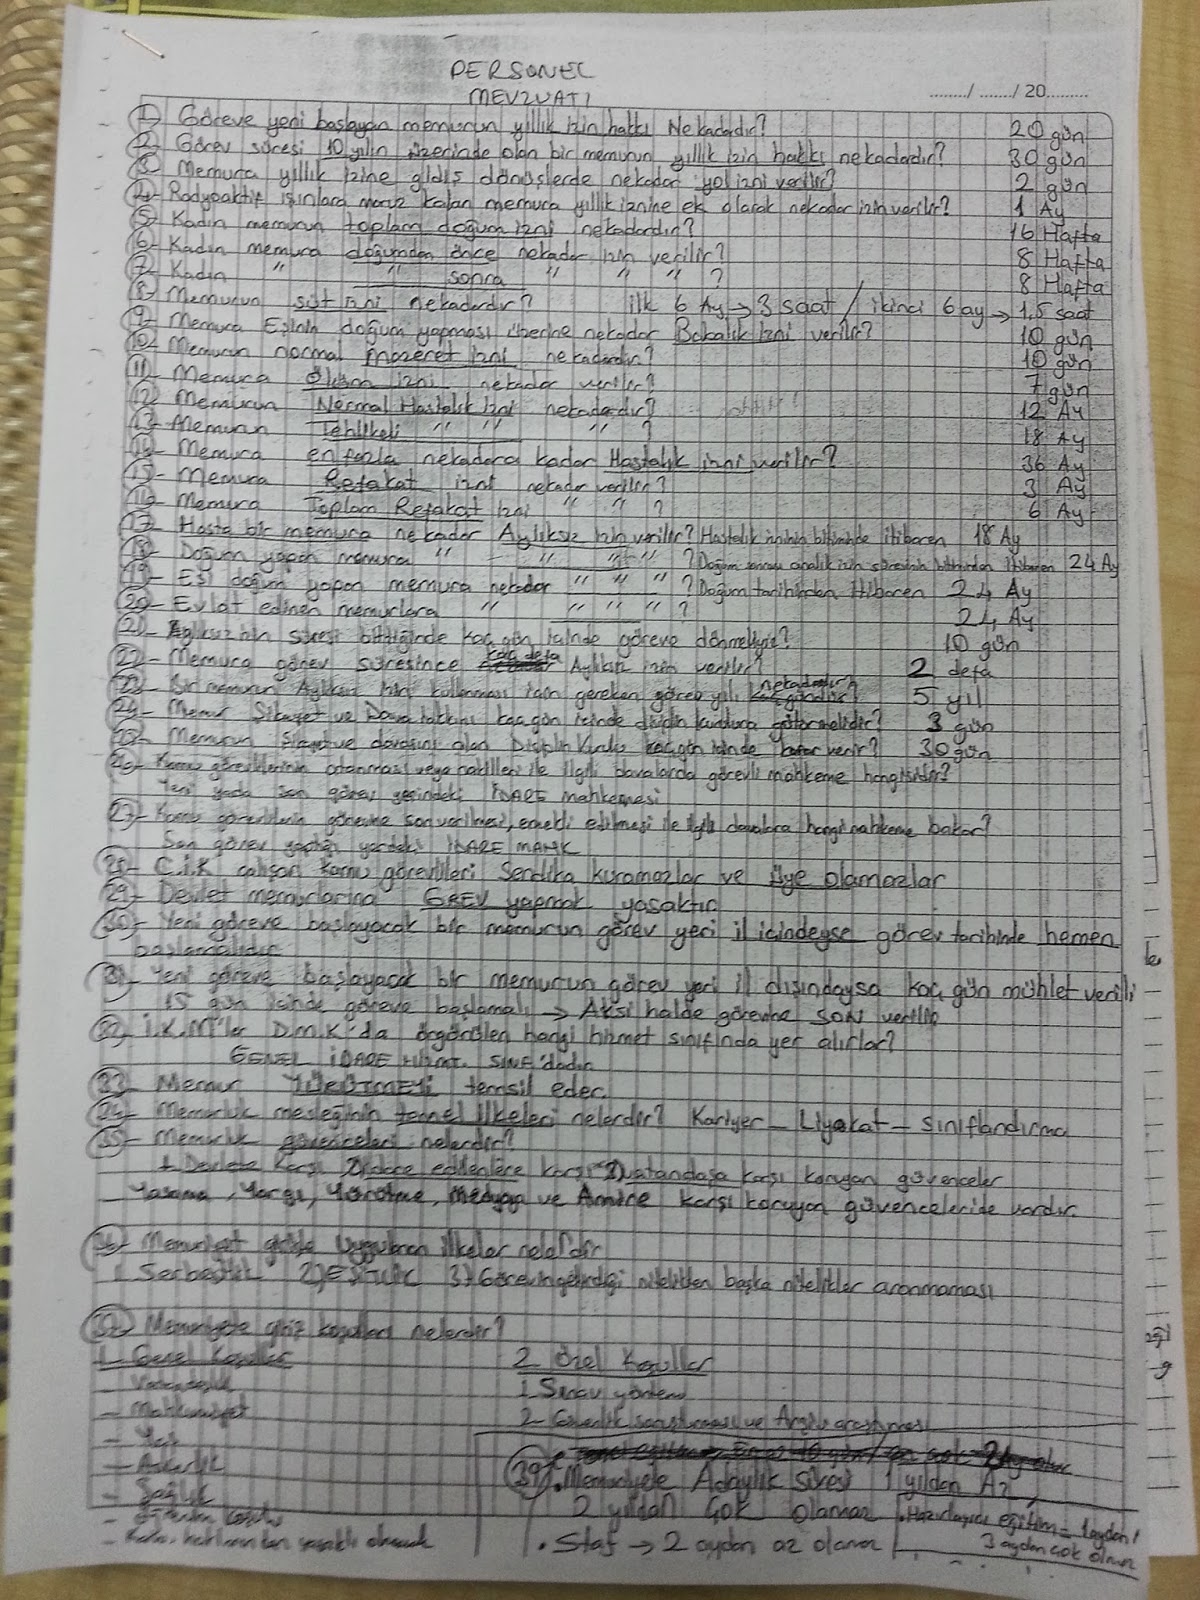 PERSONEL
MEVZUATI
....../ ....../ 20.........
1)- Göreve yeni başlayan memurun yıllık izin hakkı Nekadardır? 20 gün
2)- Görev süresi 10 yılın üzerinde olan bir memurun yıllık izin hakkı nekadardır? 30 gün
3)- Memura yıllık izine gidiş dönüşlerde nekadar yol izni verilir? 2 gün
4)- Radyoaktif ışınlara maruz kalan memura yıllık iznine ek olarak nekadar izin verilir? 1 Ay
5)- Kadın memurun toplam doğum izni nekadardır? 16 Hafta
6)- Kadın memura doğumdan önce nekadar izin verilir? 8 Hafta
7)- Kadın " " sonra " " " ? 8 Hafta
8)- Memurun süt izni nekadardır? ilk 6 Ay → 3 saat / ikinci 6 ay → 1,5 saat
9)- Memura Eşinin doğum yapması üzerine nekadar Babalık izni verilir? 10 gün
10)- Memurun normal mazeret izni nekadardır? 10 gün
11)- Memura Ölüm izni nekadar verilir? 7 gün
12)- Memurun Normal Hastalık izni nekadardır? 12 Ay
13)- Memurun Tehlikeli " " " ? 18 Ay
14)- Memura en fazla nekadara kadar Hastalık izni verilir? 36 Ay
15)- Memura Refakat izni nekadar verilir? 3 Ay
16)- Memura Toplam Refakat izni " " ? 6 Ay
17)- Hasta bir memura nekadar Aylıksız izin verilir? Hastalık izninin bitiminde itibaren 18 Ay
18)- Doğum yapan memura " " " " ? Doğum sonrası analık izin süresinin bitiminden itibaren 24 Ay
19)- Eşi doğum yapan memura nekadar " " " ? Doğum tarihinden itibaren 24 Ay
20)- Evlat edinen memurlara " " " " ? 24 Ay
21)- Aylıksız izin süresi bittiğinde kaç gün içinde göreve dönmeliyiz? 10 gün
22)- Memura görev süresince kaç defa Aylıksız izin verilir? 2 defa
23)- Bir memurun Aylıksız izin kullanması için gereken görev yılı nekadardır? 5 yıl
24)- Memur Şikayet ve Dava hakkını kaç gün içinde disiplin kuruluna götürmelidir? 3 gün
25)- Memurun Şikayet ve davasını alan Disiplin Kurulu kaç gün içinde karar verir? 30 gün
26)- Kamu görevlilerinin atanması veya nakilleri ile ilgili davalarda görevli mahkeme hangisidir?
Yeni yada son görev yerindeki İDARE mahkemesi
27)- Kamu görevlilerin görevine son verilmesi, emekli edilmesi ile ilgili davalara hangi mahkeme bakar?
Son görev yaptığı yerdeki İDARE MAHK
28)- C.İ.K çalışan kamu görevlileri Sendika kuramazlar ve üye olamazlar
29)- Devlet memurlarına GREV yapmak yasaktır
30)- Yeni göreve başlayacak bir memurun görev yeri il içindeyse görev tarihinde hemen
başlamalıdır
31)- Yeni göreve başlayacak bir memurun görev yeri il dışındaysa kaç gün mühlet verili
15 gün içinde göreve başlamalı → Aksi halde görevine SON verilir
32)- İ.K.M'ler D.M.K'da örgörülen hangi hizmet sınıfında yer alırlar?
GENEL İDARE HİZMT. SINF.'dadır
33)- Memur YÜRÜTMEYİ temsil eder.
34)- Memurluk mesleğinin temel ilkeleri nelerdir? Kariyer - Liyakat - Sınıflandırma
35)- Memurluk güvenceleri nelerdir?
1. Devlete Karşı 2) idare edilenlere karşı 3) vatandaşa karşı koruyan güvenceler
Yasama, Yargı, Yürütme, Medyaya ve Amire karşı koruyan güvenceleride vardır.
36)- Memuriyet girişde Uygulanan ilkeler nelerdir
1. Serbestlik 2) EŞİTLİK 3) Görevin gerektirdiği nitelikten başka nitelikler aranmaması
37)- Memuriyete giriş koşulları nelerdir?
1- Genel Koşullar 2 Özel Koşullar
- Vatandaşlık 1. Sınav yöntemi
- Mahkumiyet 2- Güvenlik soruşturması ve Arşiv araştırması
- Yaş
- Askerlik 39). Memuriyete Adaylık Süresi 1 yıldan Az,
- Sağlık 2 yıldan çok olamaz
- Öğrenim koşulu . Hazırlayıcı eğitim = 1 aydan
- Kamu haklarından yasaklı olmamak . Staj → 2 aydan az olamaz 3 aydan çok olmaz